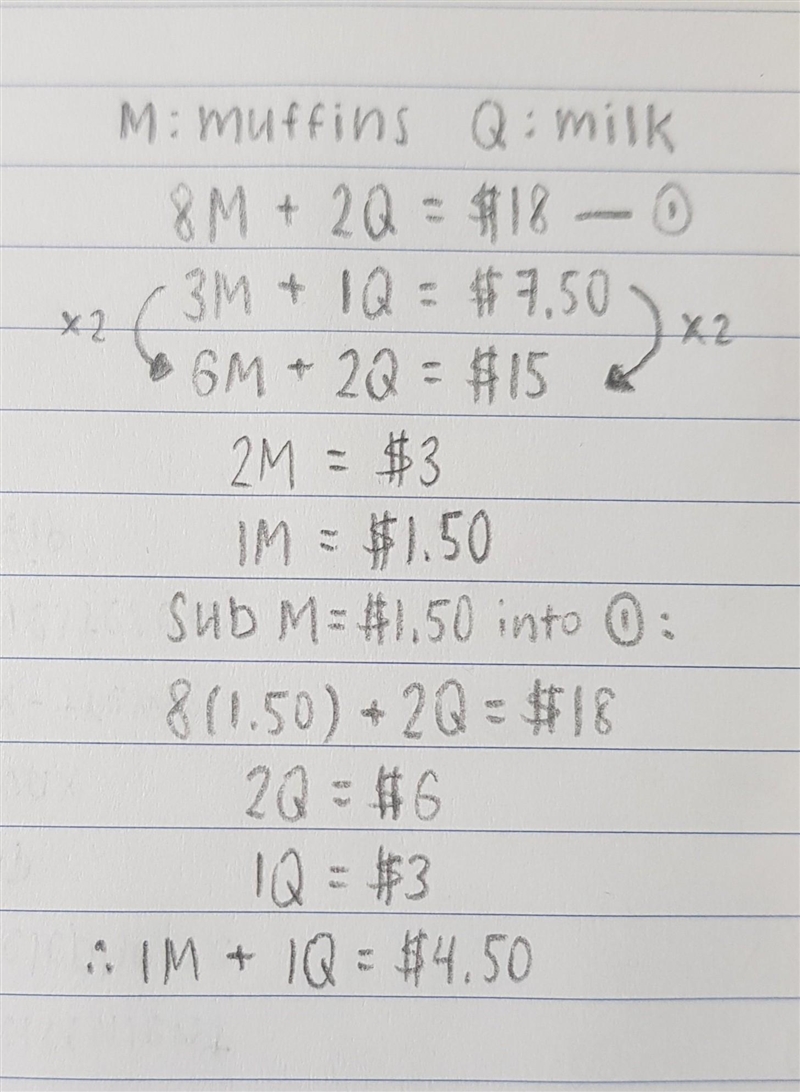 M: muffins Q: milk
8M + 2Q = $18 — ①
3M + 1Q = $7.50
×2 ×2
6M + 2Q = $15
2M = $3
1M = $1.50
Sub M = $1.50 into ①:
8(1.50) + 2Q = $18
2Q = $6
1Q = $3
∴ 1M + 1Q = $4.50